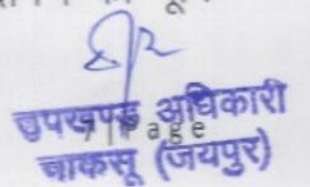 उपखण्ड अधिकारी
age
चाकसू (जयपुर)